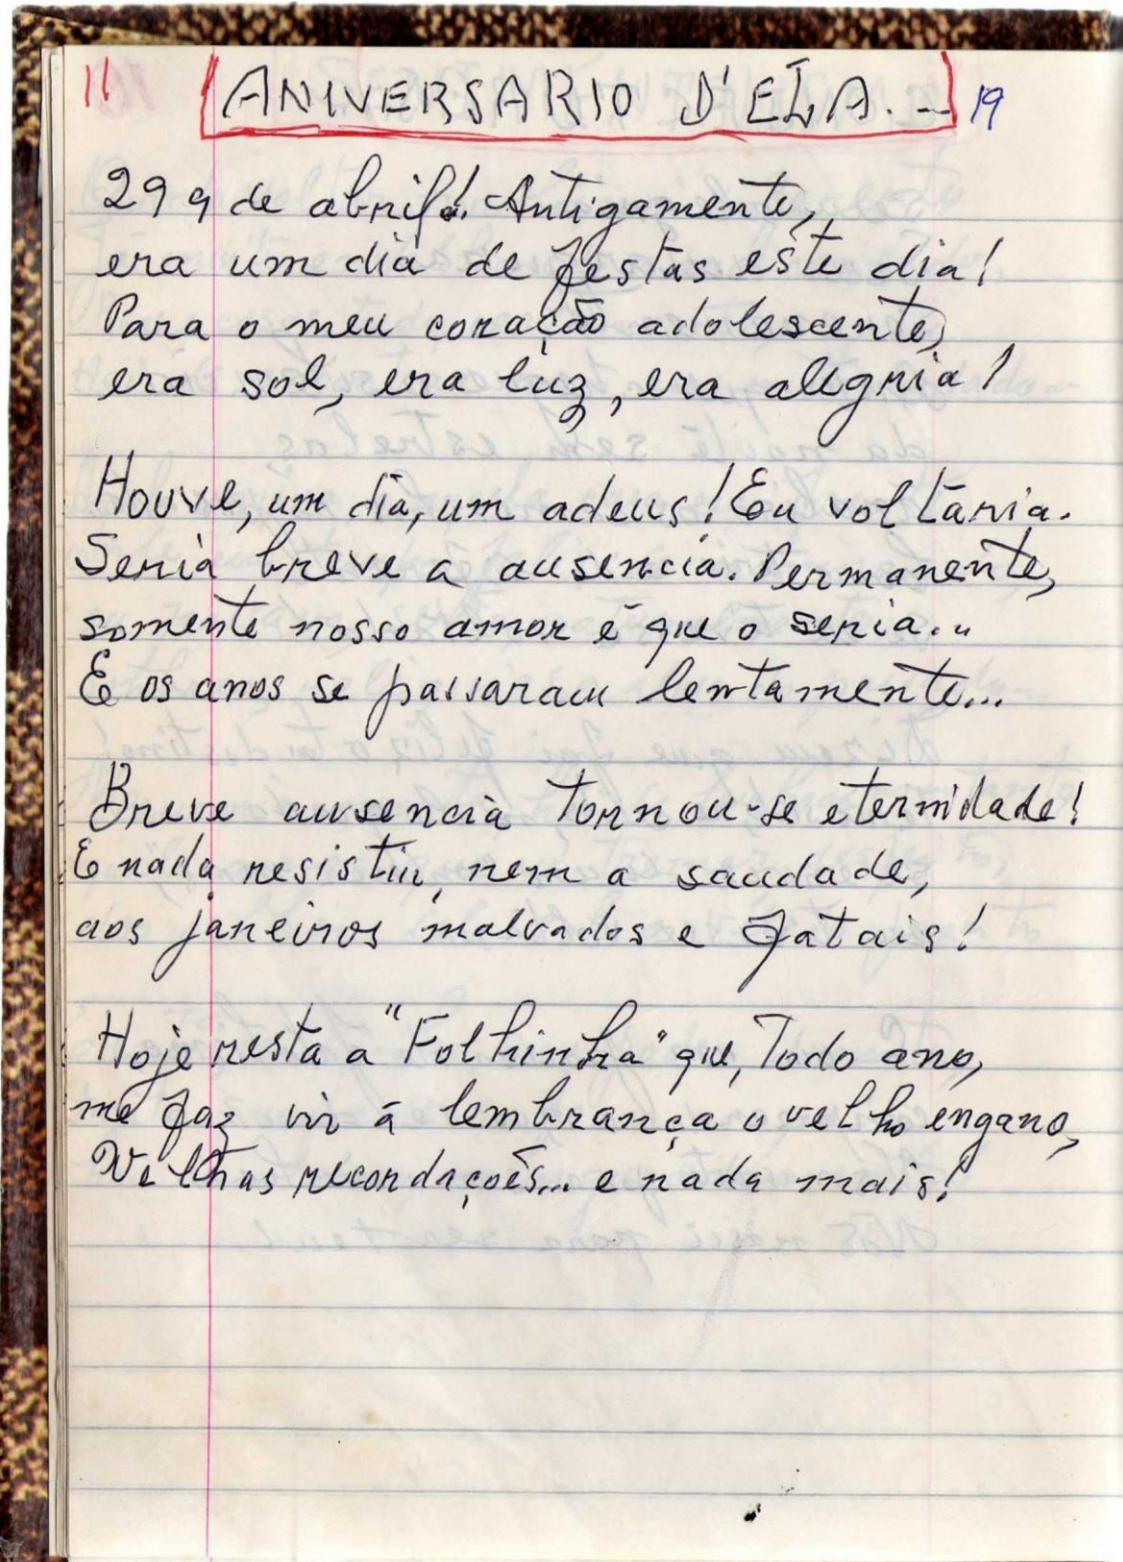 11 ANIVERSARIO D'ELA. - 19
29 9 de abril! Antigamente,
era um dia de festas este dia!
Para o meu coração adolescente,
era sol, era luz, era alegria!
Houve, um dia, um adeus! Eu voltaria.
Seria breve a ausencia. Permanente,
somente nosso amor é que o seria...
E os anos se passaram lentamente...
Breve ausencia tornou-se eternidade!
E nada resistiu, nem a saudade,
aos janeiros malvados e fatais!
Hoje resta a "Folhinha" que, todo ano,
me faz vir á lembrança o velho engano,
Velhas recordações... e nada mais!